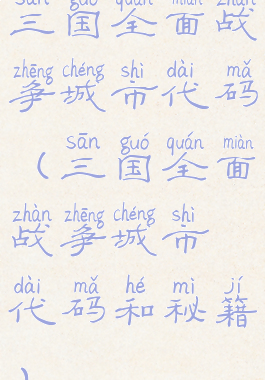 sān guó quán miàn zhàn
三国全面战
zhēng chéng shì dài mǎ
争城市代码
sān guó quán miàn
（三国全面
zhàn zhēng chéng shì
战争城市
dài mǎ hé mì jí
代码和秘籍
）